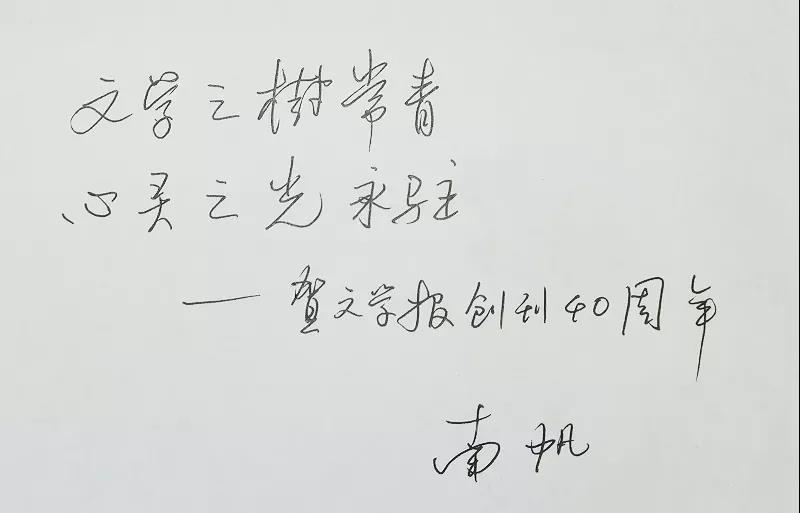 文学之树常青
心灵之光永驻
——贺文学报创刊40周年
南帆